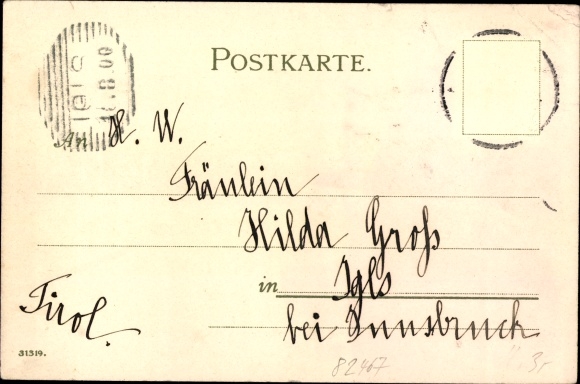 POSTKARTE.
IGLS
8.00
An H. W.
Fräulein
Hilda Groß
in Igls
Tirol.
bei Innsbruck
31319.
82467
3,-